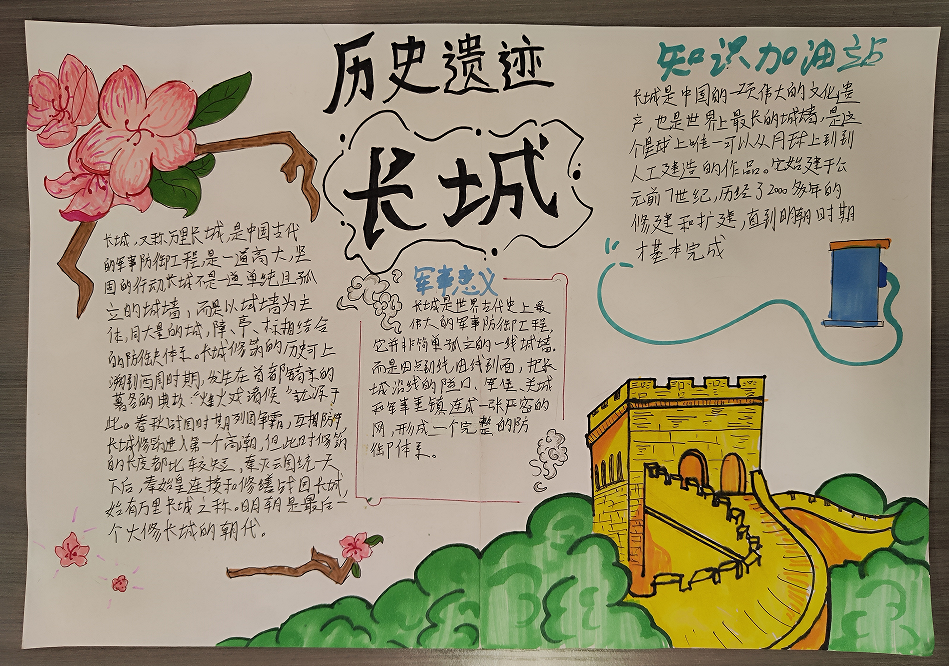 历史遗迹
长城
长城，又称万里长城，是中国古代
的军事防御工程，是一道高大，坚
固的行动长城不是一道单纯且孤
立的城墙，而是以城墙为主
体，同大量的城，障、亭、标相结合
的防御体系。长城修筑的历史可上
溯到西周时期，发生在首都镐京的
著名的典故："烽火戏诸侯"就源于
此。春秋战国时期列国争霸，互相防守
长城修筑进入第一个高潮，但此时修筑
的长度都比较短，秦灭六国统一天
下后，秦始皇连接和修缮战国长城，
始有万里长城之称。明朝是最后一
个大修长城的朝代。
军事意义
长城是世界古代史上最
伟大的军事防御工程，
它并非简单孤立的一线城墙，
而是由点到线，由线到面，把长
城沿线的隘口、军堡、关城
和军事重镇连成一张严密的
网，形成一个完整的防
御体系。
知识加油站
长城是中国的一项伟大的文化遗
产，也是世界上最长的城墙，是这
个星球上唯一可以从月球上看到
人工建造的作品。它始建于公
元前7世纪，历经了2000多年的
修建和扩建，直到明朝时期
才基本完成